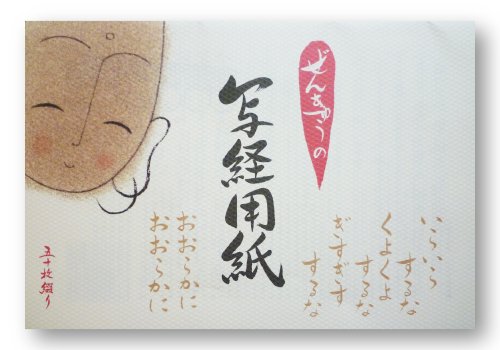 ぜんきゅうの
写経用紙
いらいら
するな
くよくよ
するな
ぎすぎす
するな
おおらかに
おおらかに
五十枚綴り